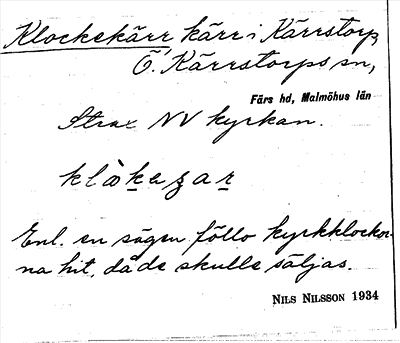 Klockekärr kärr i Kärrstorp,
Ö. Kärrstorps sn,
Färs hd, Malmöhus län
Strax NV kyrkan.
Enl. en sägen föllo kyrkklockor-
na hit, då de skulle säljas.
NILS NILSSON 1934